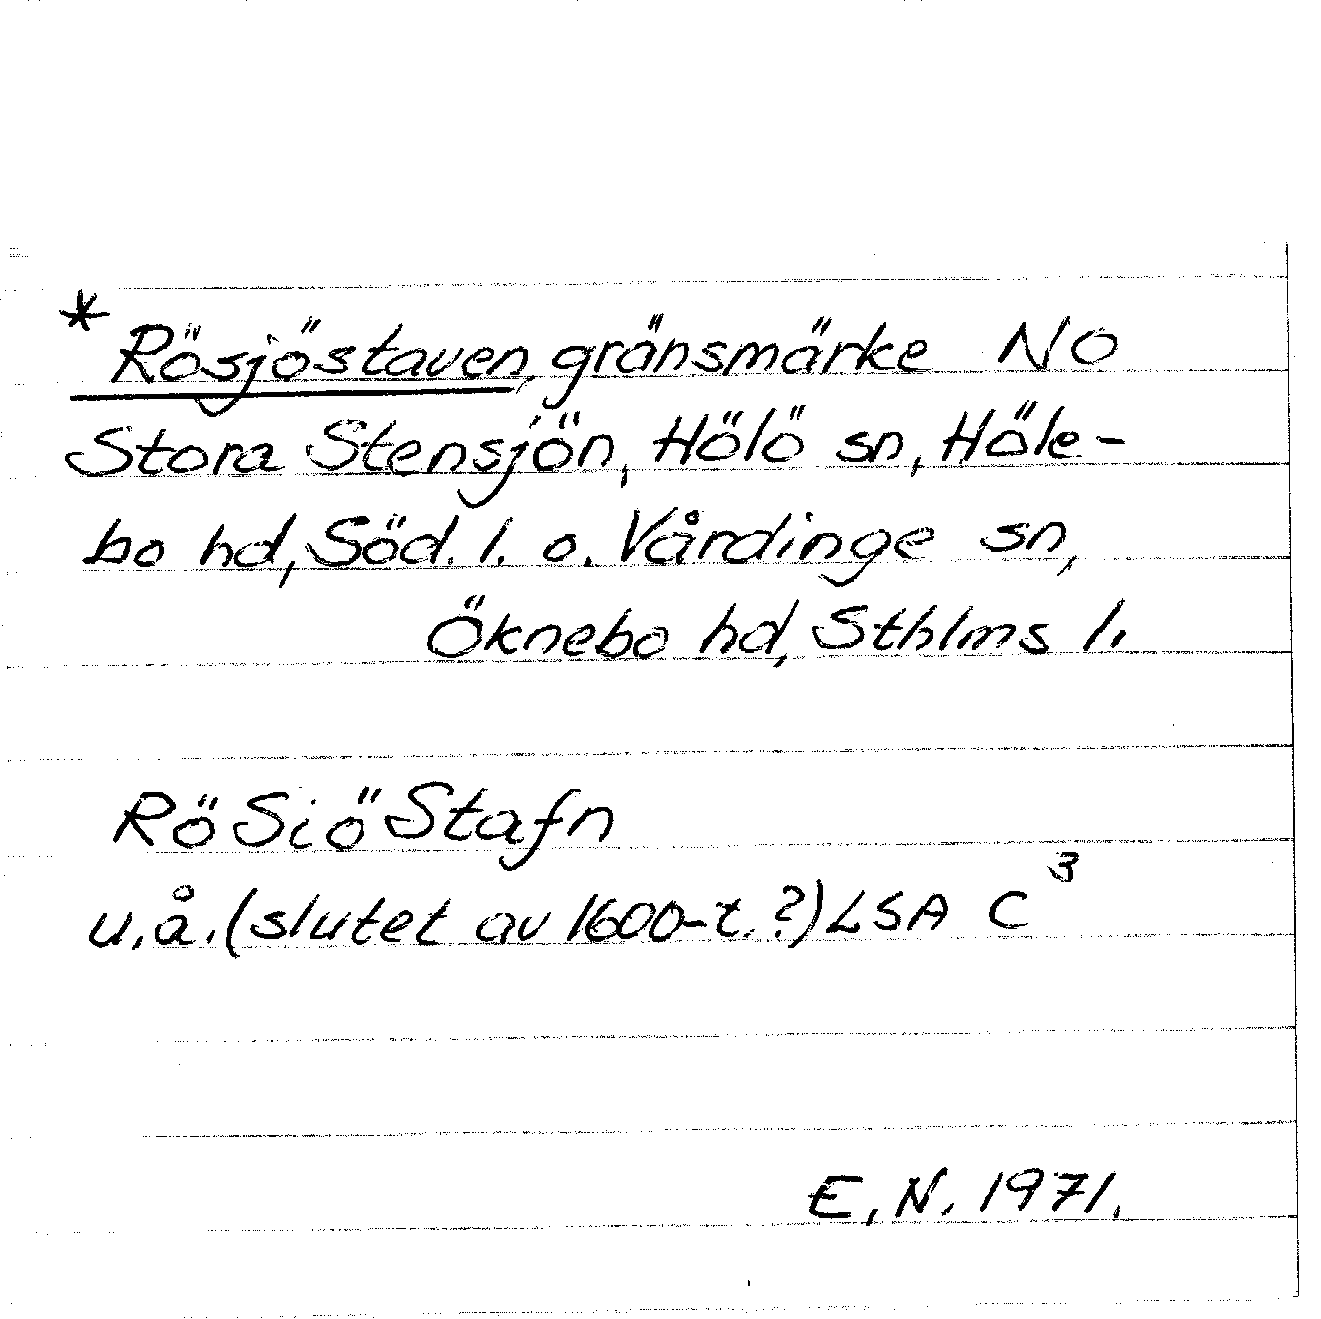 * Rösjöstaven, gränsmärke NO
Stora Stensjön, Hölö sn, Höle-
bo hd, Söd. l. o. Vårdinge sn,
Öknebo hd, Sthlms l.
RöSiöStafn
u.å. (slutet av 1600-t. ?) LSA C³
E. N. 1971.